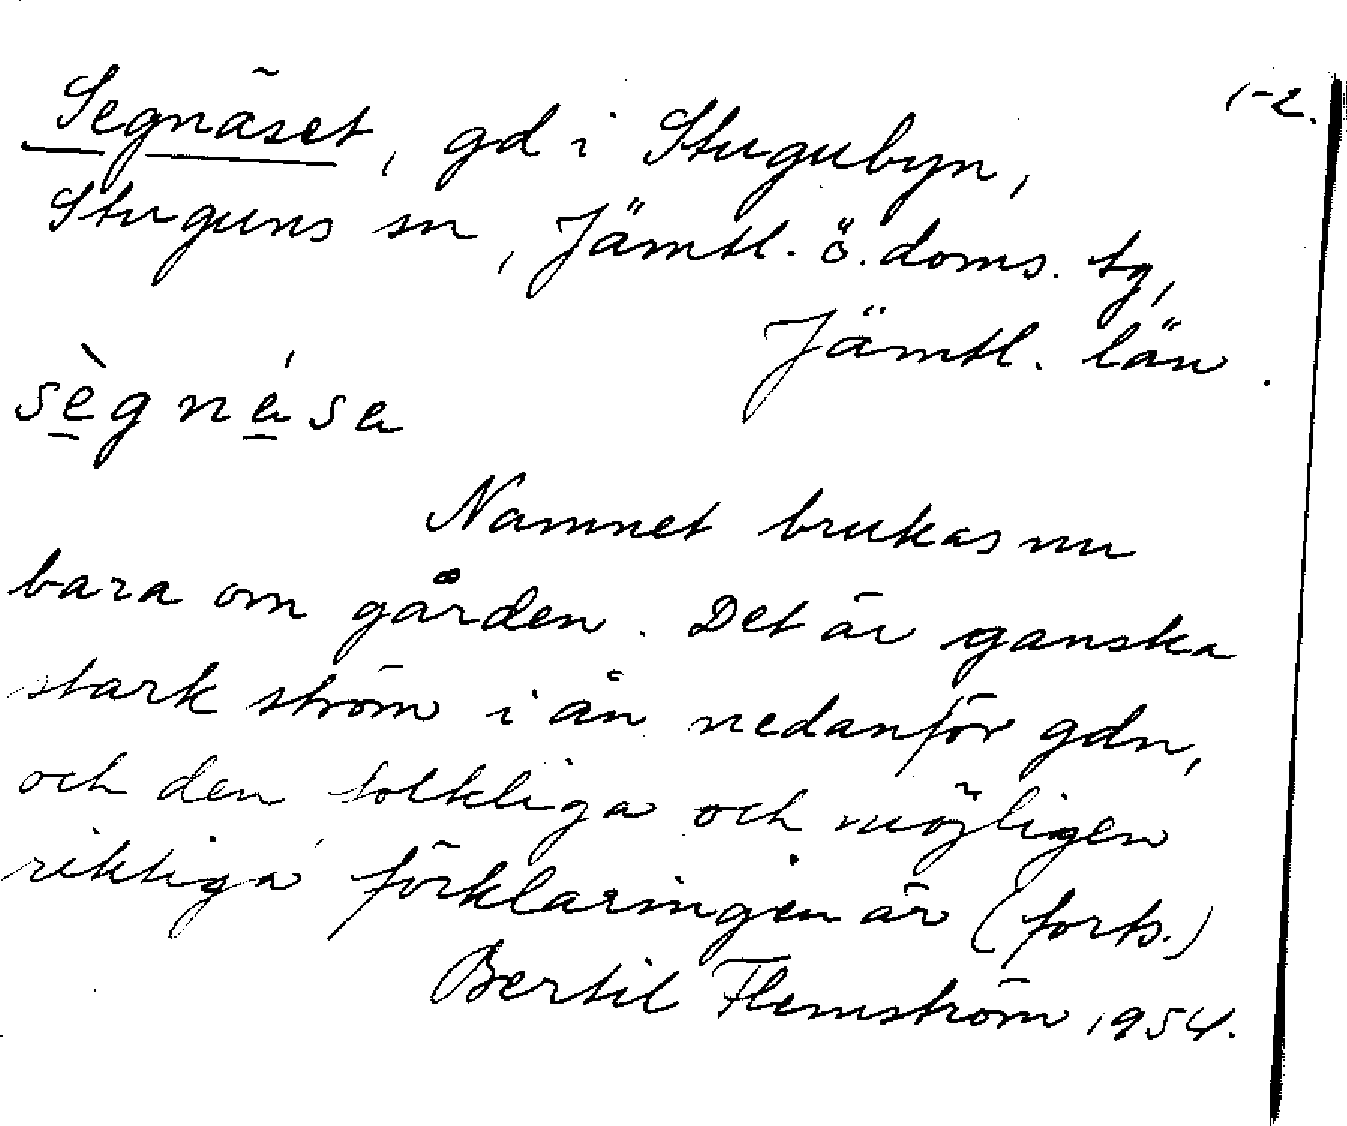 1-2.
Segnäset, gd i Stugubyn,
Stuguns sn, Jämtl. ö. doms. tg,
Jämtl. län.
sègnása
Namnet brukas nu
bara om gården. Det är ganska
stark ström i ån nedanför gdn,
och den folkliga och möjligen
riktiga förklaringen är (forts.)
Bertil Flemström 1954.